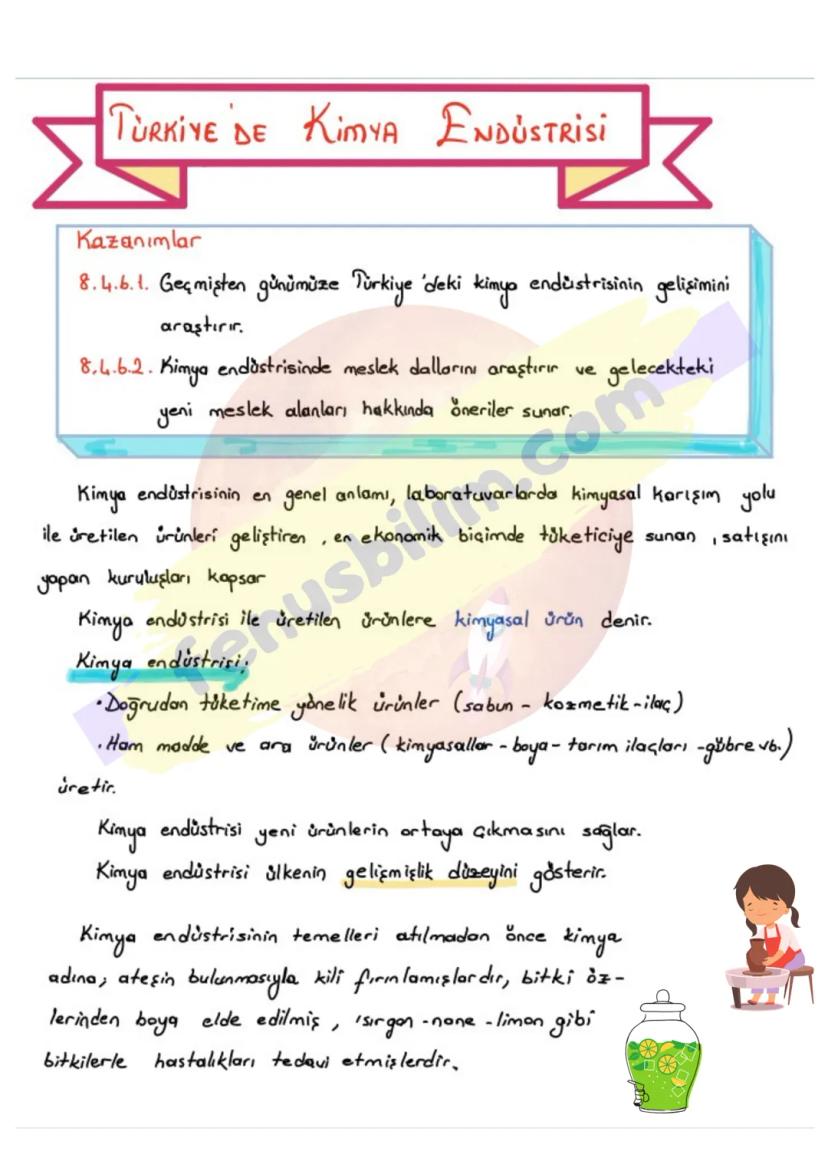 TÜRKİYE'DE KİMYA ENDÜSTRİSİ
Kazanımlar
8.4.6.1. Geçmişten günümüze Türkiye'deki kimya endüstrisinin gelişimini
araştırır.
8.4.6.2. Kimya endüstrisinde meslek dallarını araştırır ve gelecekteki
yeni meslek alanları hakkında öneriler sunar.
Kimya endüstrisinin en genel anlamı, laboratuvarlarda kimyasal karışım yolu
ile üretilen ürünleri geliştiren, en ekonomik biçimde tüketiciye sunan, satışını
yapan kuruluşları kapsar
Kimya endüstrisi ile üretilen ürünlere kimyasal ürün denir.
Kimya endüstrisi;
• Doğrudan tüketime yönelik ürünler (sabun - kozmetik - ilaç)
• Ham madde ve ara ürünler (kimyasallar - boya - tarım ilaçları - gübre vb.)
üretir.
Kimya endüstrisi yeni ürünlerin ortaya çıkmasını sağlar.
Kimya endüstrisi ülkenin gelişmişlik düzeyini gösterir.
Kimya endüstrisinin temelleri atılmadan önce kimya
adına; ateşin bulunmasıyla kili fırınlamışlardır, bitki öz-
lerinden boya elde edilmiş, ısırgan - nane - limon gibi
bitkilerle hastalıkları tedavi etmişlerdir.
fenusbilim.com